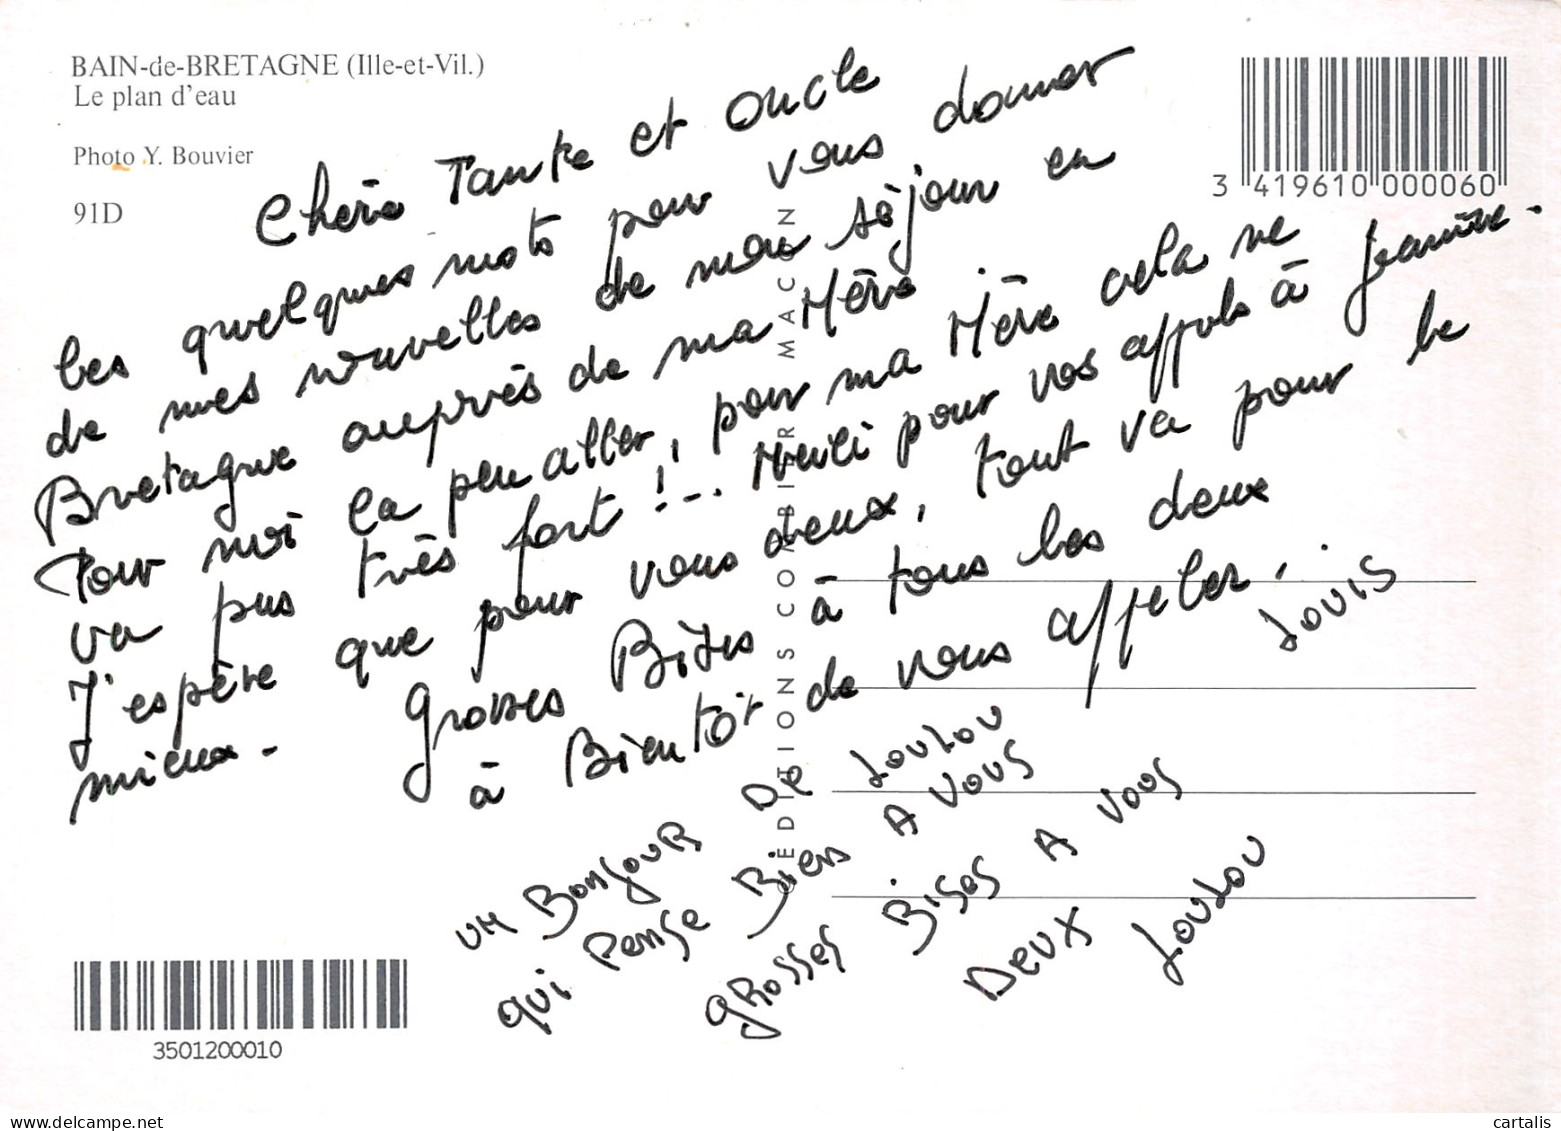 BAIN-de-BRETAGNE (Ille-et-Vil.)
Le plan d'eau
Photo Y. Bouvier
91D
3 419610 000060
Chère Tante et Oncle
Ces quelques mots pour vous donner
de mes nouvelles de mon séjour en
Bretagne auprès de ma Mère
Pour moi ça peu aller, pour ma Mère cela ne
va pas très fort !... Merci pour vos appels à
J'espère que pour vous deux, tout va pour le
mieux.
Grosses Bises à tous les deux
à Bientôt de vous appeler.
Louis
UN BONJOUR De LOULOU
QUI Pense Biens A VOUS
GROSSES BISES A VOUS
DeUX
LOULOU
EDITIONS COMBIER MACON
3501200010
www.delcampe.net
cartalis